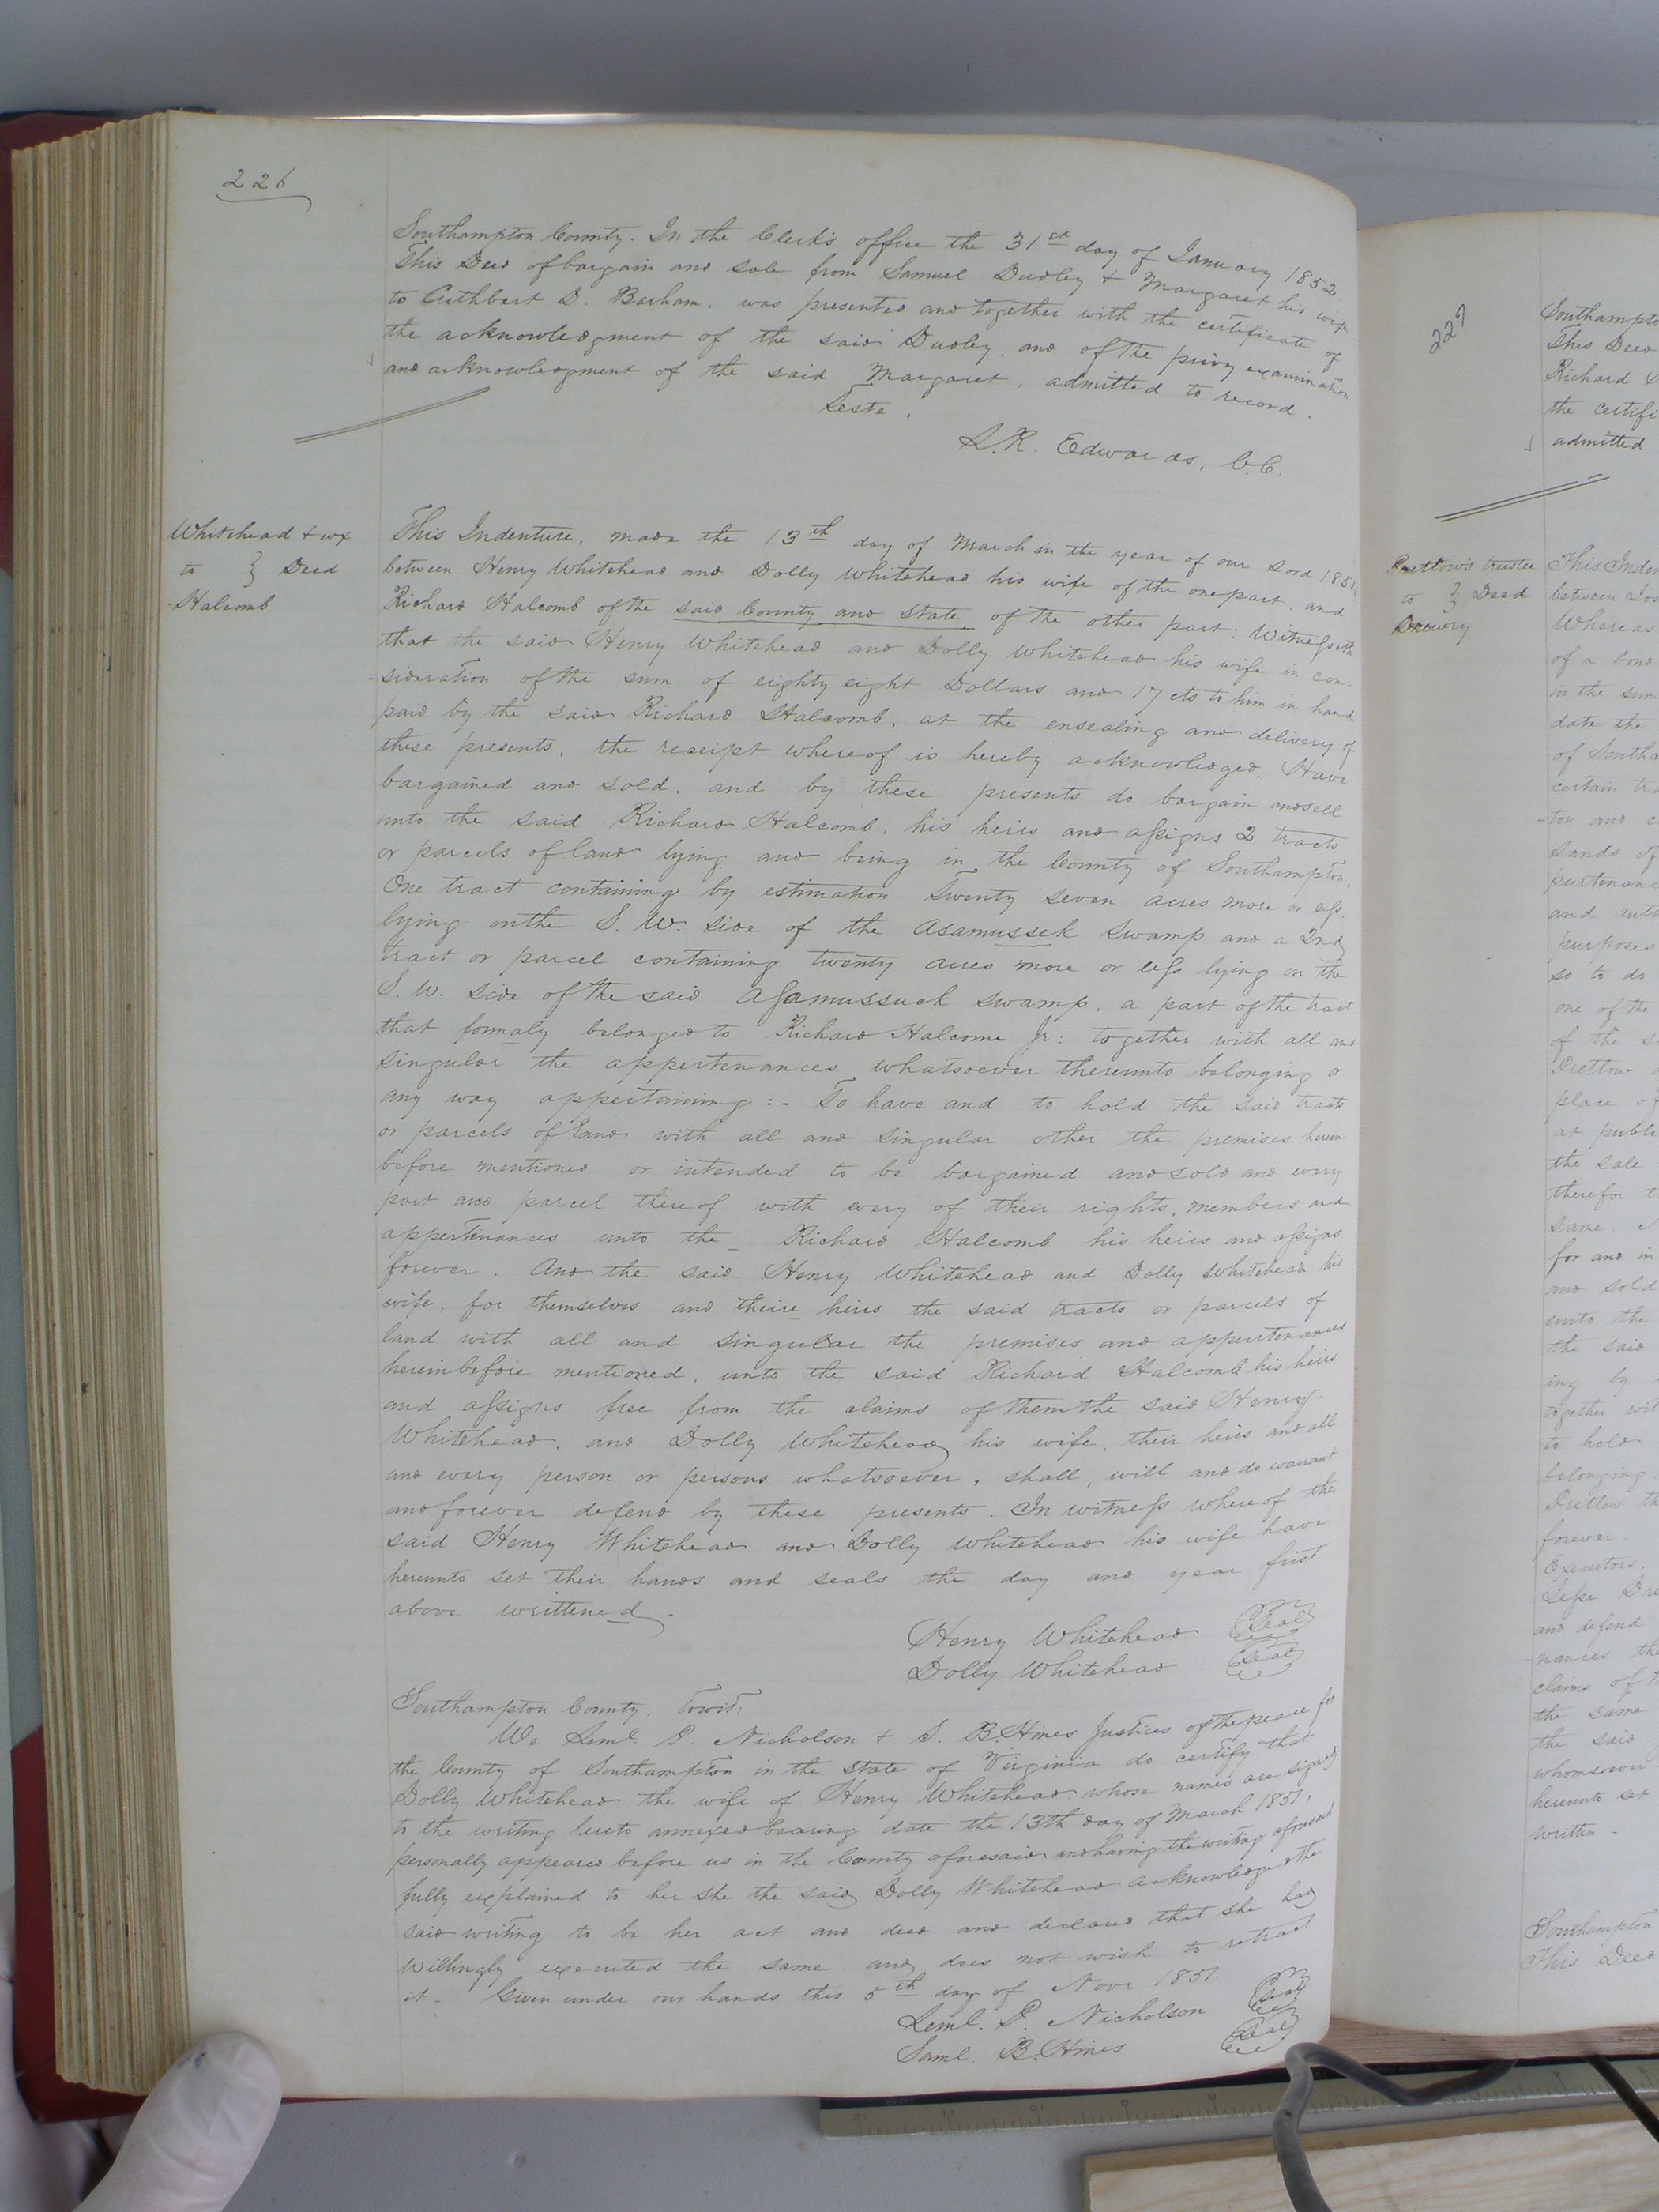 226
Southampton County. In the Clerk's office the 31st day of January 1852
This Deed of bargain and sale from Samuel Dudley & Margaret his wife
to Cuthbert D. Barham, was presented and together with the certificate of
the acknowledgment of the said Dudley, and of the privy examination
and acknowledgment of the said Margaret, admitted to record.
Teste,
L. R. Edwards, C.C.
Whitehead & ux
to } Deed
Halcomb
This Indenture, made the 13th day of March in the year of our Lord 1851,
between Henry Whitehead and Dolly Whitehead his wife of the one part, and
Richard Halcomb of the said County and State of the other part: Witnesseth
that the said Henry Whitehead and Dolly Whitehead his wife in con-
-sideration of the sum of eighty eight Dollars and 17 cts to him in hand
paid by the said Richard Halcomb, at the ensealing and delivery of
these presents, the receipt whereof is hereby acknowledged. Have
bargained and sold, and by these presents do bargain and sell
unto the said Richard Halcomb, his heirs and assigns 2 tracts
or parcels of land lying and being in the County of Southampton,
One tract containing by estimation Twenty seven acres more or less,
lying on the S. W. side of the Asamussek Swamp and a 2nd
tract or parcel containing twenty acres more or less lying on the
S. W. side of the said Assamussuck swamp, a part of the tract
that formaly belonged to Richard Halcome Jr: together with all and
singular the appertenances whatsoever thereunto belonging or
any way appertaining:- To have and to hold the said tracts
or parcels of land with all and singular other the premises herein
before mentioned or intended to be bargained and sold and every
part and parcel thereof with every of their rights, members and
appertinances unto the Richard Halcomb his heirs and assigns
forever. And the said Henry Whitehead and Dolly Whitehead his
wife, for themselves and theire heirs the said tracts or parcels of
land with all and singular the premises and appertenances
hereinbefore mentioned, unto the said Richard Halcomb his heirs
and assigns free from the claims of them the said Henry
Whitehead, and Dolly Whitehead his wife, their heirs and all
and every person or persons whatsoever, shall, will and do warrant
and forever defend by these presents. In witness whereof the
said Henry Whitehead and Dolly Whitehead his wife have
hereunto set their hands and seals the day and year first
above writtened.
Henry Whitehead Seal
Dolly Whitehead Seal
Southampton County, Towit:
We Leml. P. Nicholson & S. B. Hines Justices of the peace for
the County of Southampton in the State of Virginia do certify that
Dolly Whitehead the wife of Henry Whitehead whose names are signed
to the writing hereto annexed bearing date the 13th day of March 1851,
personally appeared before us in the County aforesaid and having the writing aforesaid
fully explained to her she the said Dolly Whitehead acknowledged the
said writing to be her act and deed and declared that she had
willingly executed the same and does not wish to retract
it - Given under our hands this 5th day of Novr 1851.
Leml. P. Nicholson Seal
Saml. B. Hines Seal
227
Southampto
This Deed
Richard
the certifi
admitted
Pretlow's trustee
to } Deed
Drewry
This Inden
between
Whereas
of a bond
in the sum
date the
of Southa
certain tra
-ton and
lands of
purtenanc
and auth
purposes
so to do
one of the
of the
Pretlow
place of
at publi
the sale
therefor
same.
for and in
and sold
unto the
the said
ing by
together wit
to hold
belonging
Pretlow th
forever.
Executors.
and defend
-nances the
claims of
the same
the said
whomsoever
hereunto set
written -
Southampton
This Deed